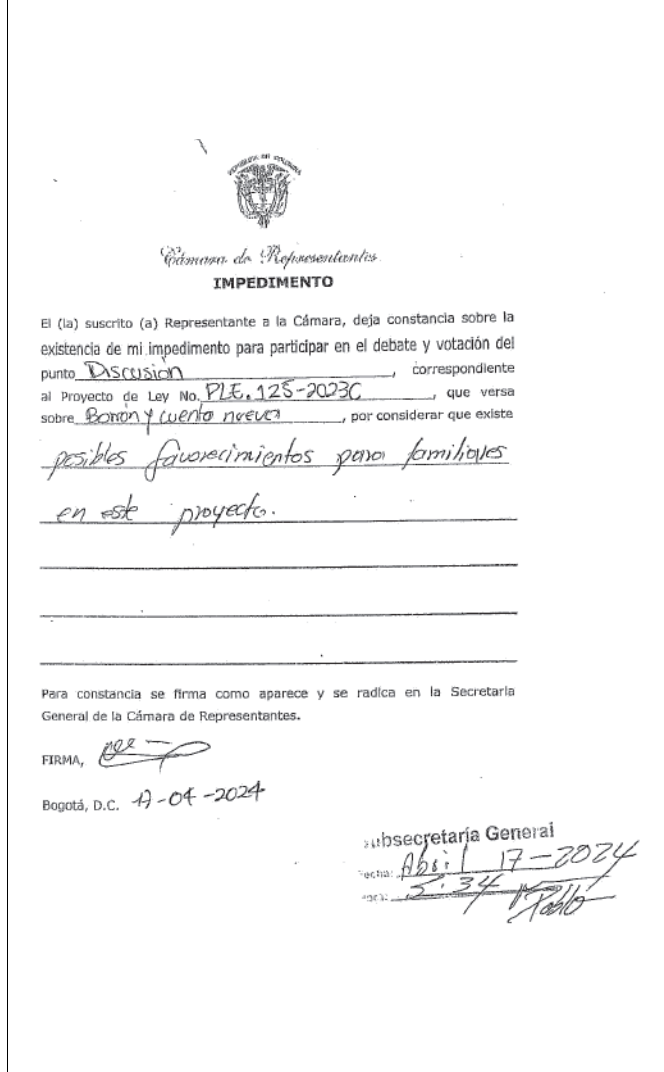 REPUBLICA DE COLOMBIA
Cámara de Representantes
IMPEDIMENTO
El (la) suscrito (a) Representante a la Cámara, deja constancia sobre la
existencia de mi impedimento para participar en el debate y votación del
punto Discusión, correspondiente
al Proyecto de Ley No. PLE. 125-2023C, que versa
sobre Borrón y cuenta nueva, por considerar que existe
posibles favorecimientos para familiares
en este proyecto.
Para constancia se firma como aparece y se radica en la Secretaria
General de la Cámara de Representantes.
FIRMA,
Bogotá, D.C. 17-04-2024
Subsecretaría General
Fecha: Abril 17-2024
Hora: 5:34
Pablo